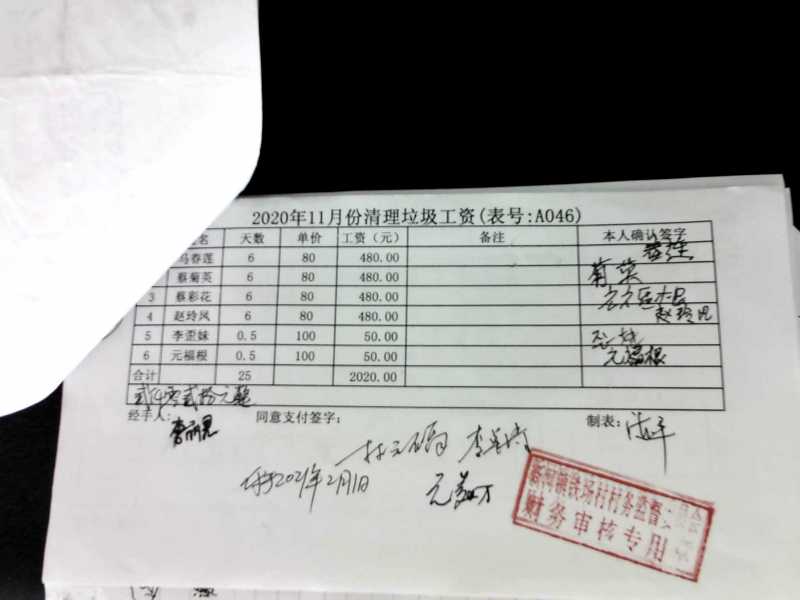 2020年11月份清理垃圾工资(表号:A046)
名 天数 单价 工资（元） 备注 本人确认签字
冯春莲 6 80 480.00
蔡菊英 6 80 480.00 菊英
3 蔡彩花 6 80 480.00
4 赵玲凤 6 80 480.00 赵玲凤
5 李歪妹 0.5 100 50.00
6 元福根 0.5 100 50.00 元福根
合计 25 2020.00
贰仟零贰拾元整
经手人: 同意支付签字: 制表:
2021年2月1日
新河镇铁场村村务监督
财务审核专用